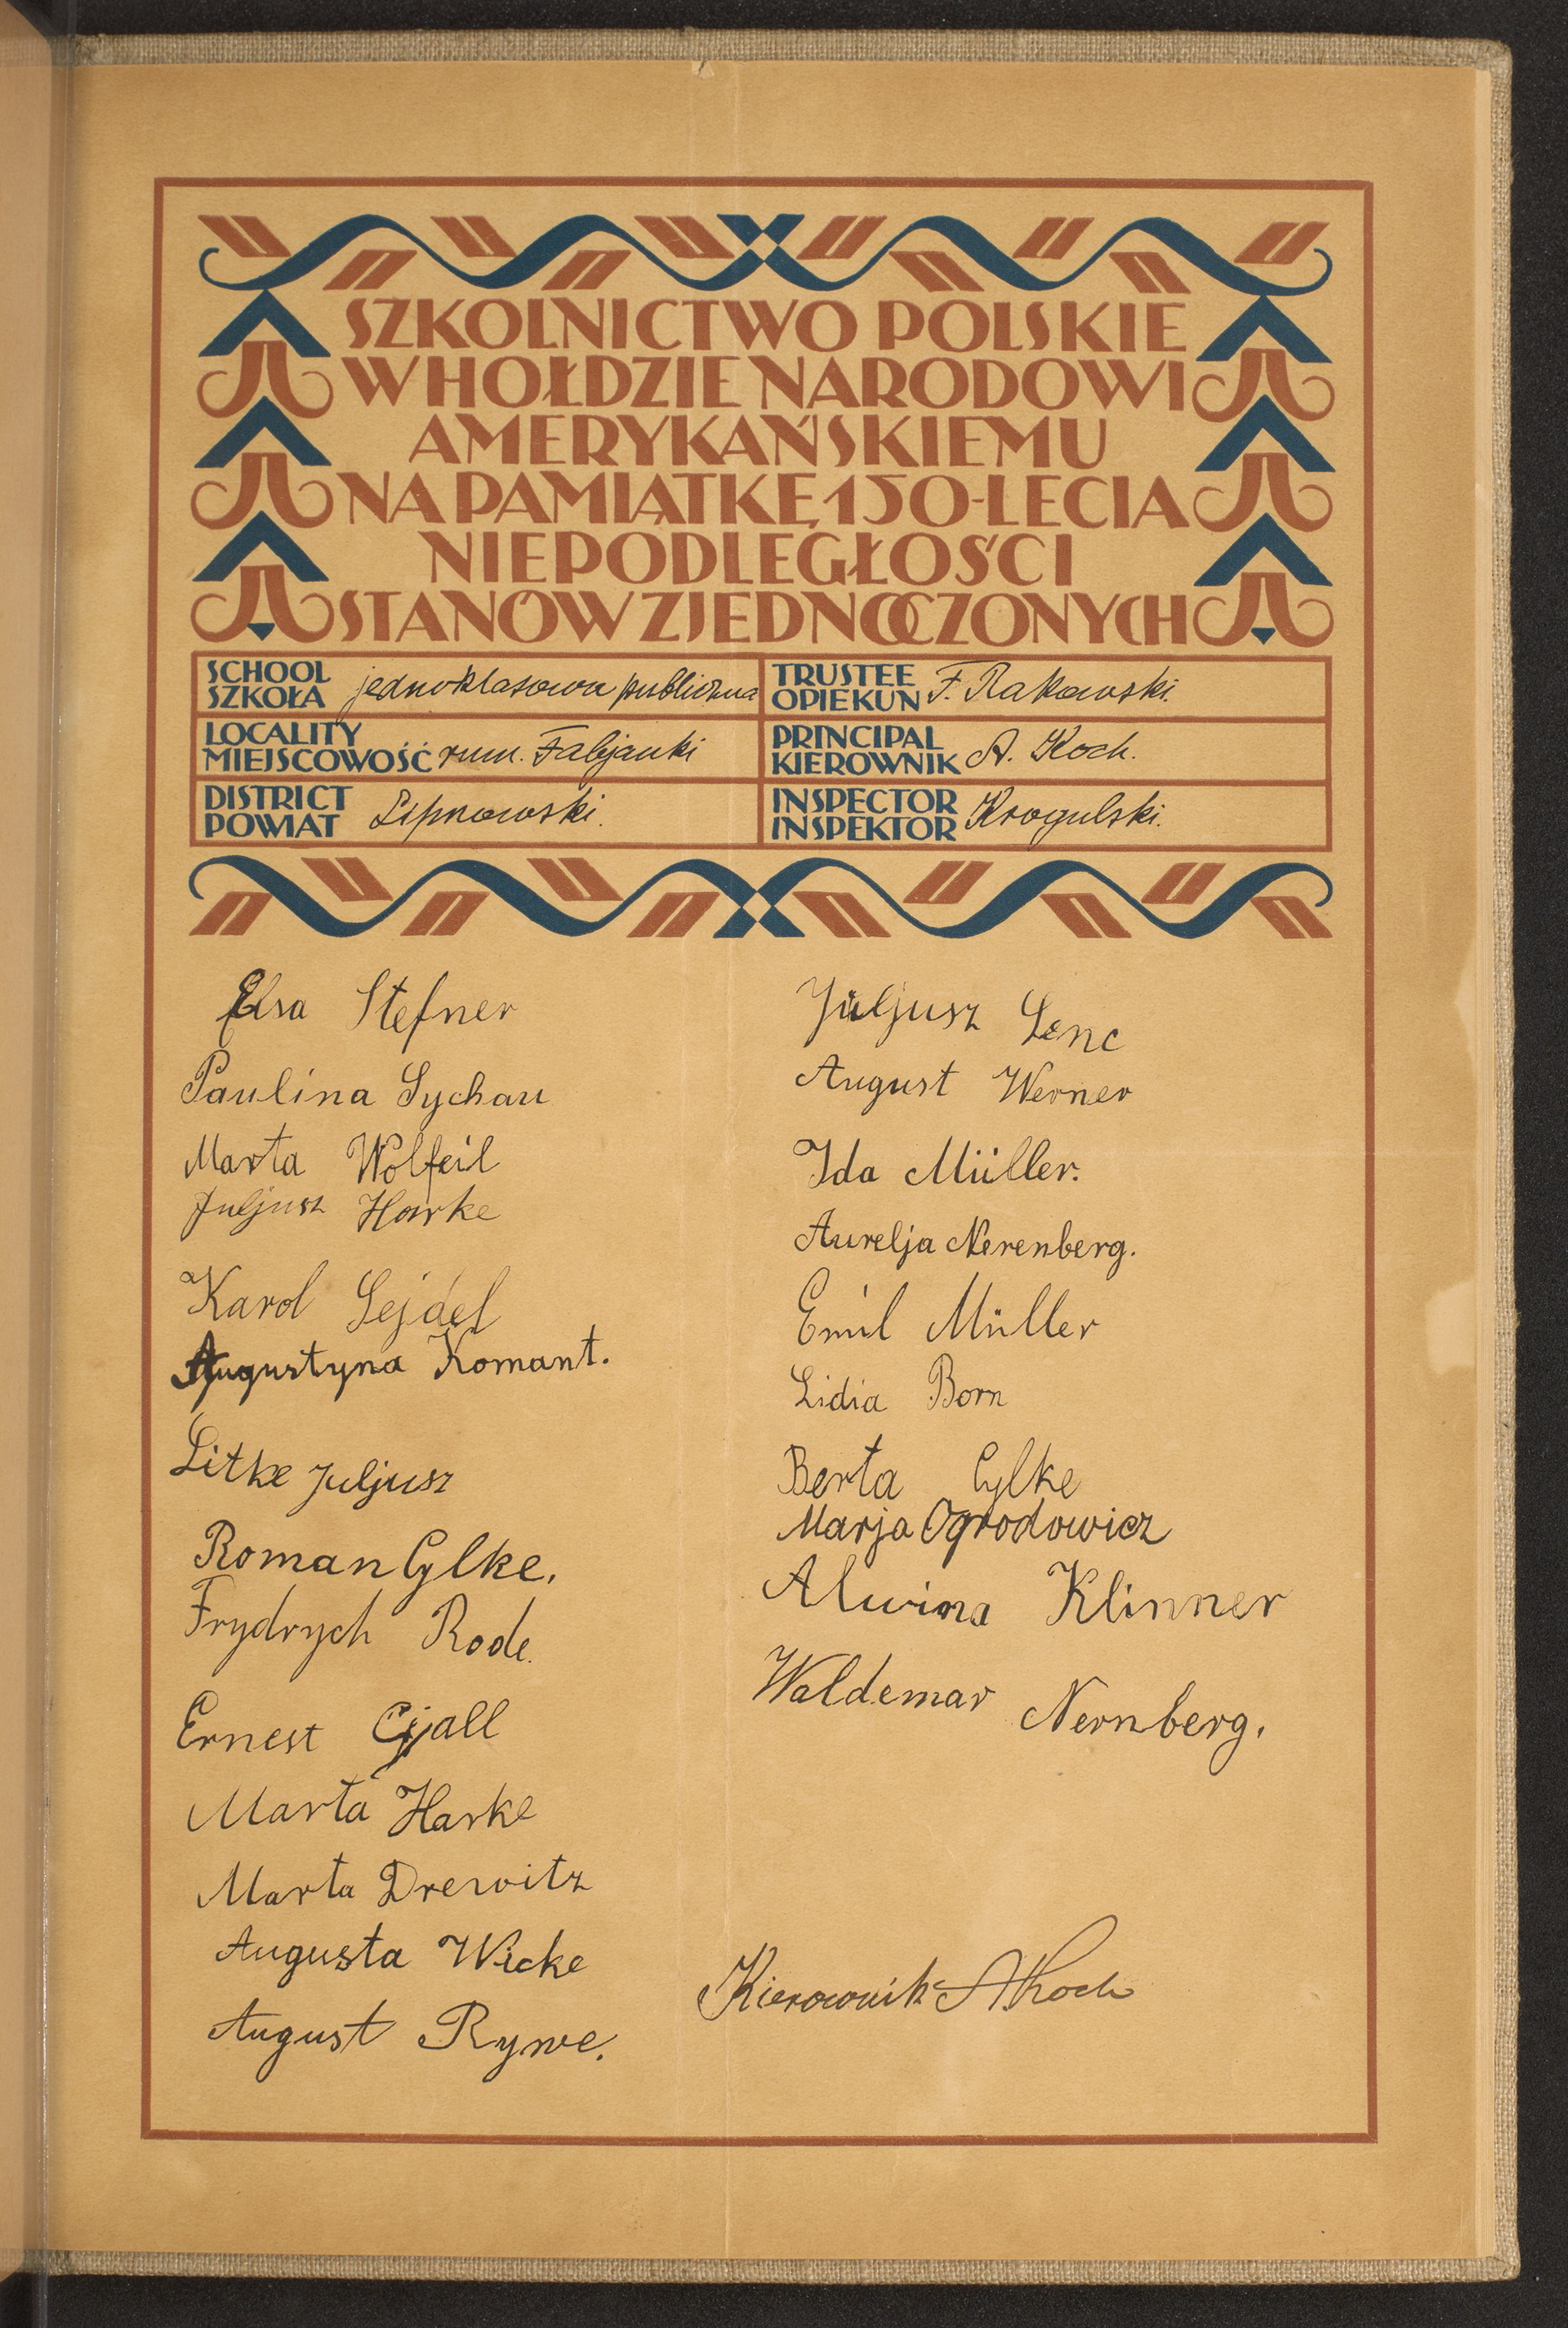 SZKOLNICTWO POLSKIE
W HOŁDZIE NARODOWI
AMERYKAŃSKIEMU
NA PAMIĄTKĘ 150-LECIA
NIEPODLEGŁOŚCI
STANÓW ZJEDNOCZONYCH
SCHOOL
SZKOŁA jednoklasowa publiczna
TRUSTEE
OPIEKUN F. Rakowski.
LOCALITY
MIEJSCOWOŚĆ rum. Fabjanki
PRINCIPAL
KIEROWNIK A. Koch.
DISTRICT
POWIAT Lipnowski.
INSPECTOR
INSPEKTOR Krogulski.
Elsa Stefner
Paulina Sychau
Marta Wolfeil
Juljusz Harke
Karol Lejdel
Augustyna Komant.
Litke Juljusz
Roman Cylke.
Frydrych Rode.
Ernest
Marta Harke
Marta Drewitz
Augusta Wicke
August Rywe.
Juljusz Lenc
August Werner
Ida Müller.
Aurelja Nerenberg.
Emil Müller
Lidia Born
Berta Cylke
Marja Ogrodowicz
Alwina Klinner
Waldemar Nernberg.
Kierownik A. Koch